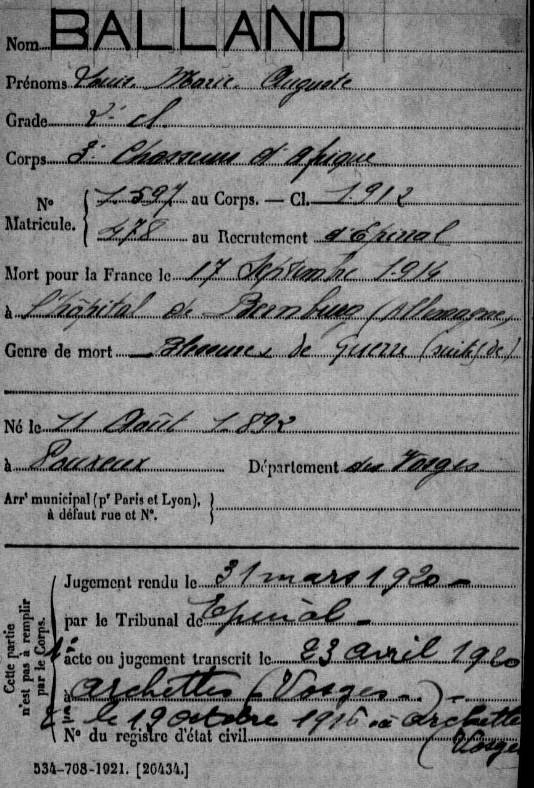 Nom BALLAND
Prénoms Louis Marie Auguste
Grade 2e cl
Corps 3e Chasseurs d'afrique
N° Matricule. { 1.597 au Corps. — Cl. 1912
478 au Recrutement d'Epinal
Mort pour la France le 17 Septembre 1914
à l'hôpital de Bernburg (Allemagne)
Genre de mort Blessures de Guerre (suites de)
Né le 11 Août 1892
à Pouxeux Département des Vosges
Arrt municipal (pr Paris et Lyon), }
à défaut rue et N°.
Cette partie n'est pas à remplir par le Corps.
Jugement rendu le 31 mars 1920
par le Tribunal de Epinal
acte ou jugement transcrit le 23 avril 1920
à Archettes (Vosges)
le 19 octobre 1916 à Archettes
N° du registre d'état civil (Vosges
534-708-1921. [26434.]